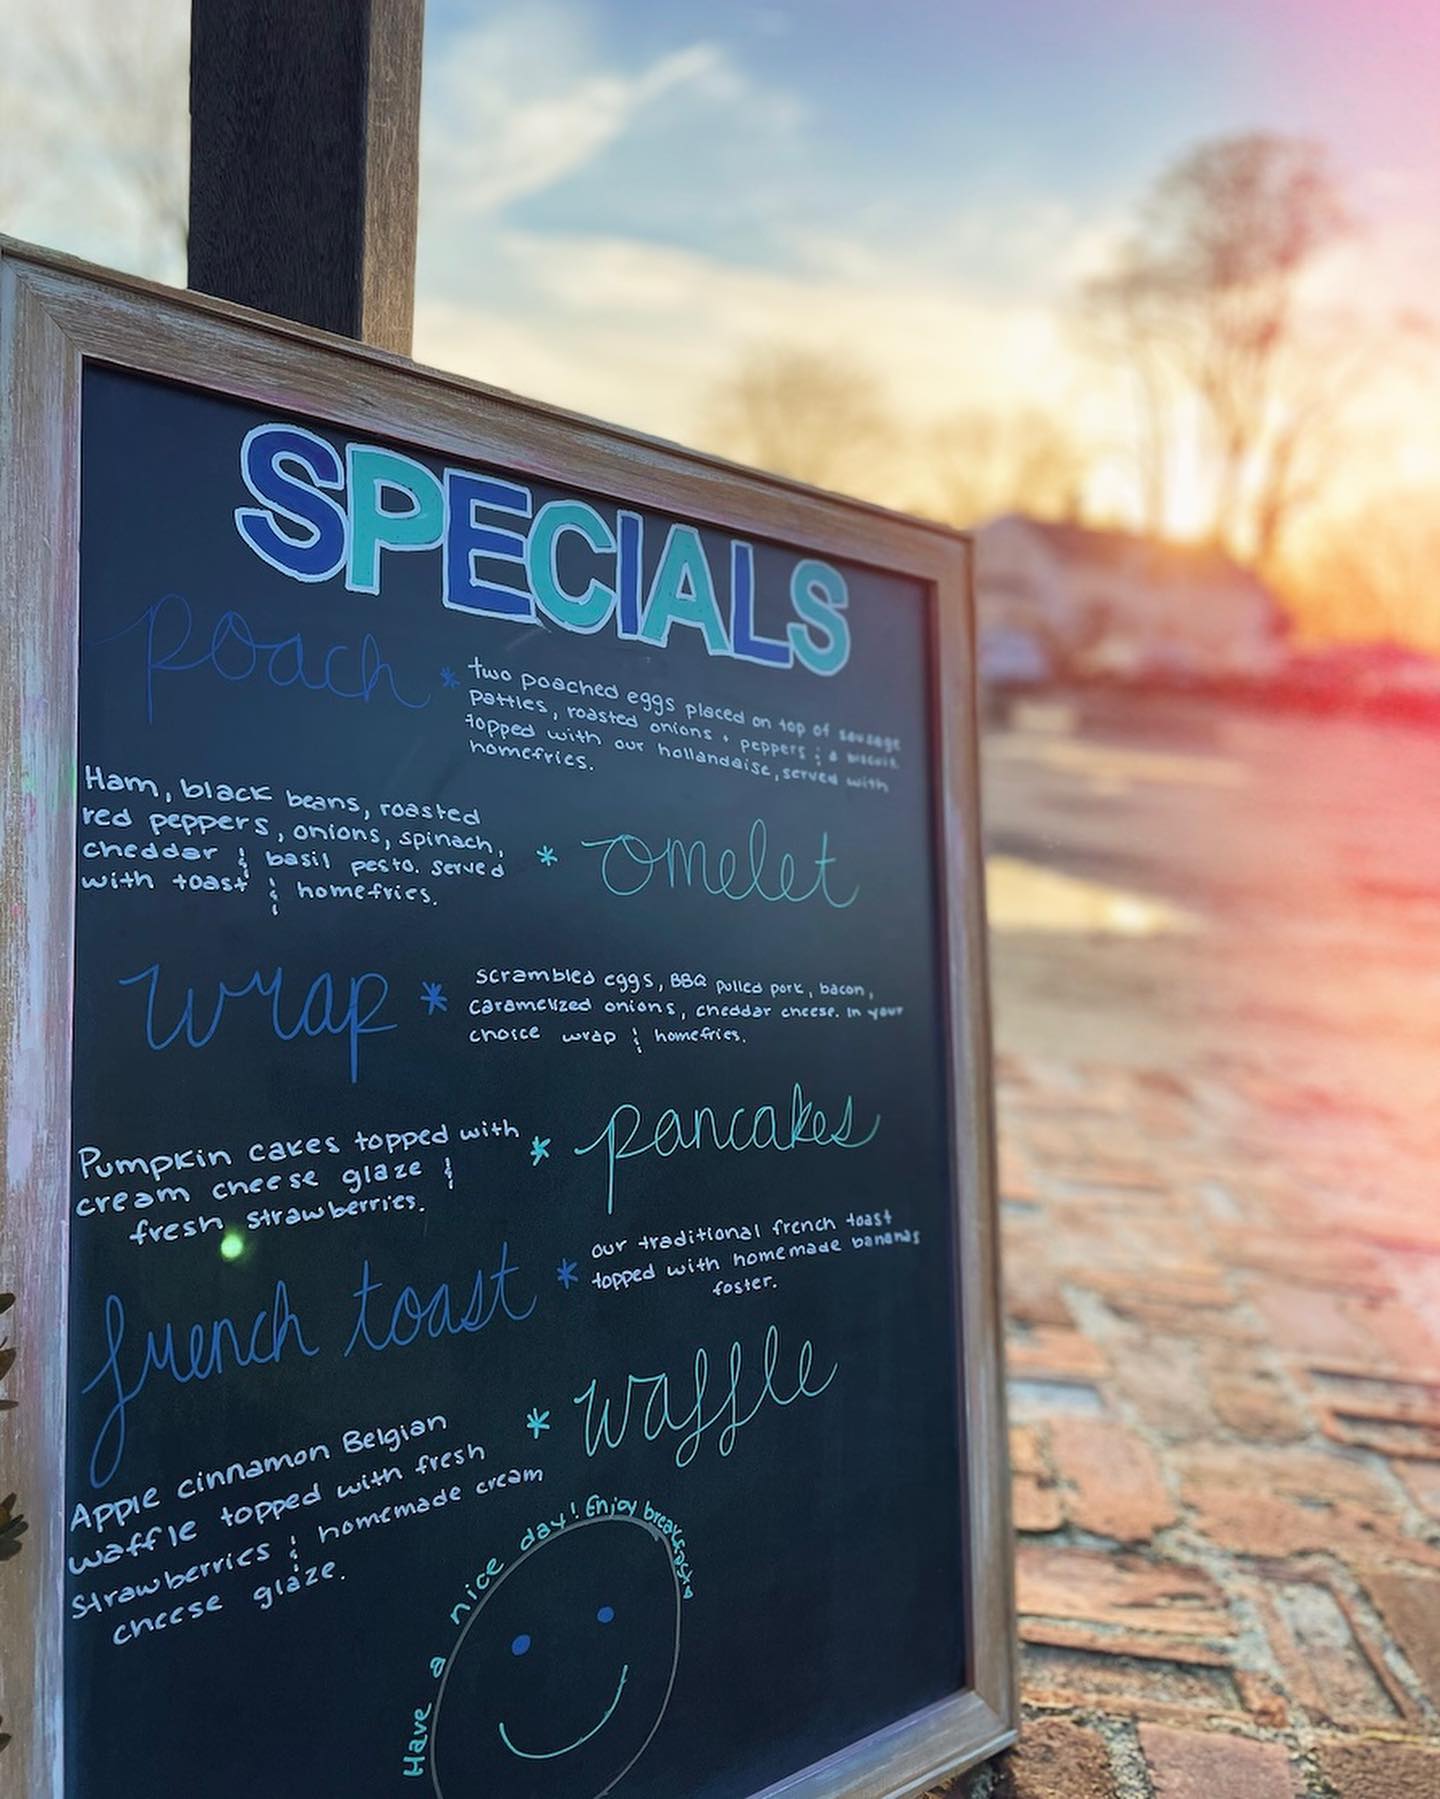 SPECIALS
poach * two poached eggs placed on top of sausage
patties, roasted onions + peppers & a biscuit
topped with our hollandaise, served with
homefries.
Ham, black beans, roasted
red peppers, onions, spinach,
cheddar & basil pesto. served
with toast & homefries.
* omelet
wrap * scrambled eggs, BBQ pulled pork, bacon,
caramelized onions, cheddar cheese. In your
choice wrap & homefries.
Pumpkin cakes topped with
cream cheese glaze &
fresh strawberries.
* pancakes
french toast * our traditional french toast
topped with homemade bananas
foster.
* waffle
Apple cinnamon Belgian
waffle topped with fresh
strawberries & homemade cream
cheese glaze.
Have a nice day! Enjoy breakfast